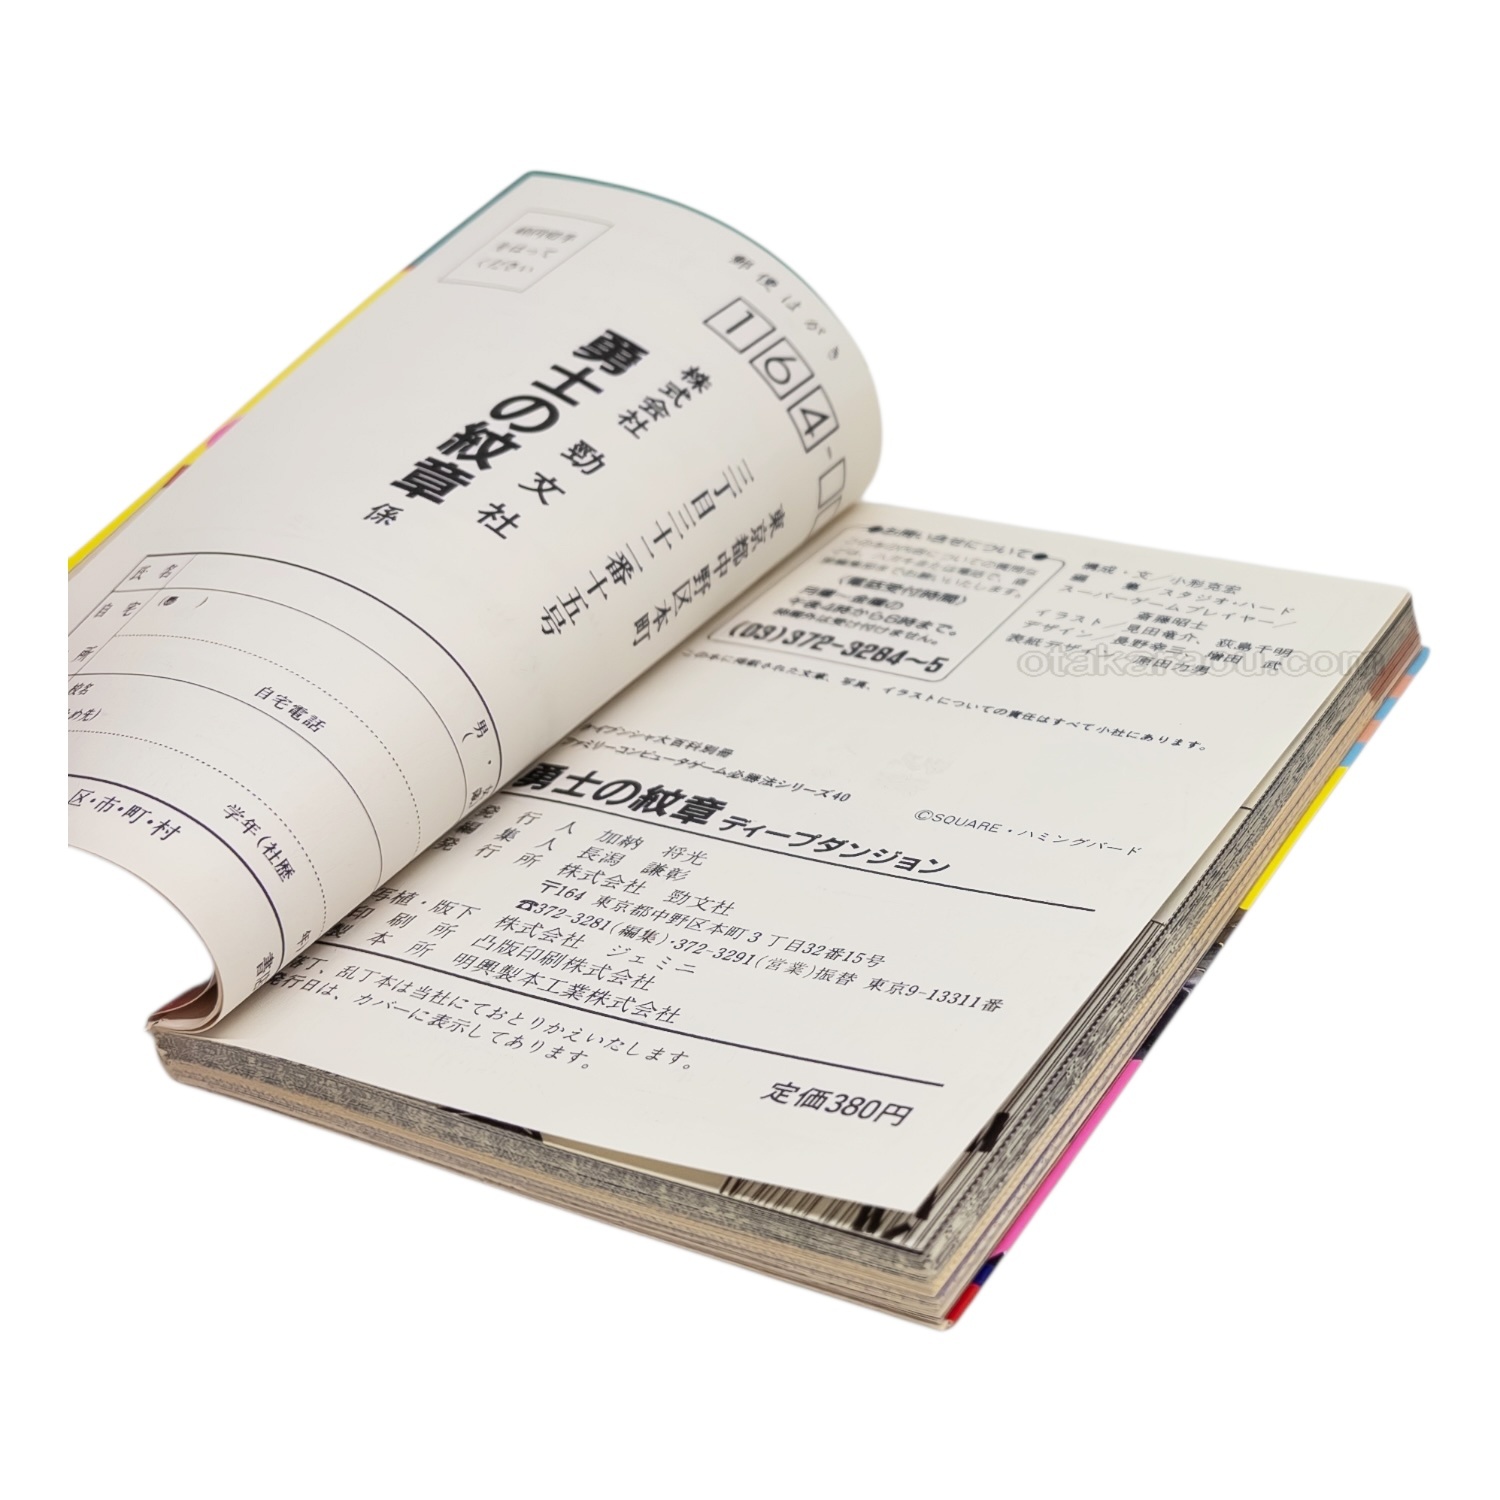 郵便はがき
164-
東京都中野区本町
三丁目三十二番十五号
株式会社 勁文社
勇士の紋章 係
をはって
ください
氏名
自宅
所
男(
自宅電話
学年(社歴
区・市・町・村
●お問い合せについて●
《電話受付時間》
月曜〜金曜の
午後4時から6時まで。
時間外は受け付けません。
(03)372-3284〜5
構成・文／小形克宏
編 集／スタジオ・ハード
スーパーゲームプレイヤー／
斎藤昭士
イラスト／見田竜介、荻島千明
デザイン／長野幸三、増田 武
表紙デザイン／原田力男
otakaraou.com
この本に掲載された文献、写真、イラストについての責任はすべて小社にあります。
ケイブンシャ大百科別冊
ファミリーコンピュータゲーム必勝法シリーズ40
勇士の紋章 ディープダンジョン
©SQUARE・ハミングバード
発行人 加納 将光
編集人 長潟 謙彰
発行所 株式会社 勁文社
〒164 東京都中野区本町3丁目32番15号
☎372-3281(編集)・372-3291(営業)振替 東京9-13311番
写植・版下 株式会社 ジェミニ
印刷所 凸版印刷株式会社
製本所 明興製本工業株式会社
落丁、乱丁本は当社にておとりかえいたします。
発行日は、カバーに表示してあります。
定価380円